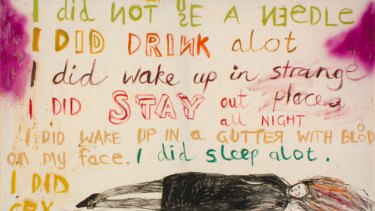 I did NOT USE A NEEDLE
I DID DRINK alot
I did wake up in strange
I DID STAY out places
all NIGHT
I DID WAKE UP IN A GUTTER WITH BLOOD
on my face. I did sleep alot.
I DID
CRY